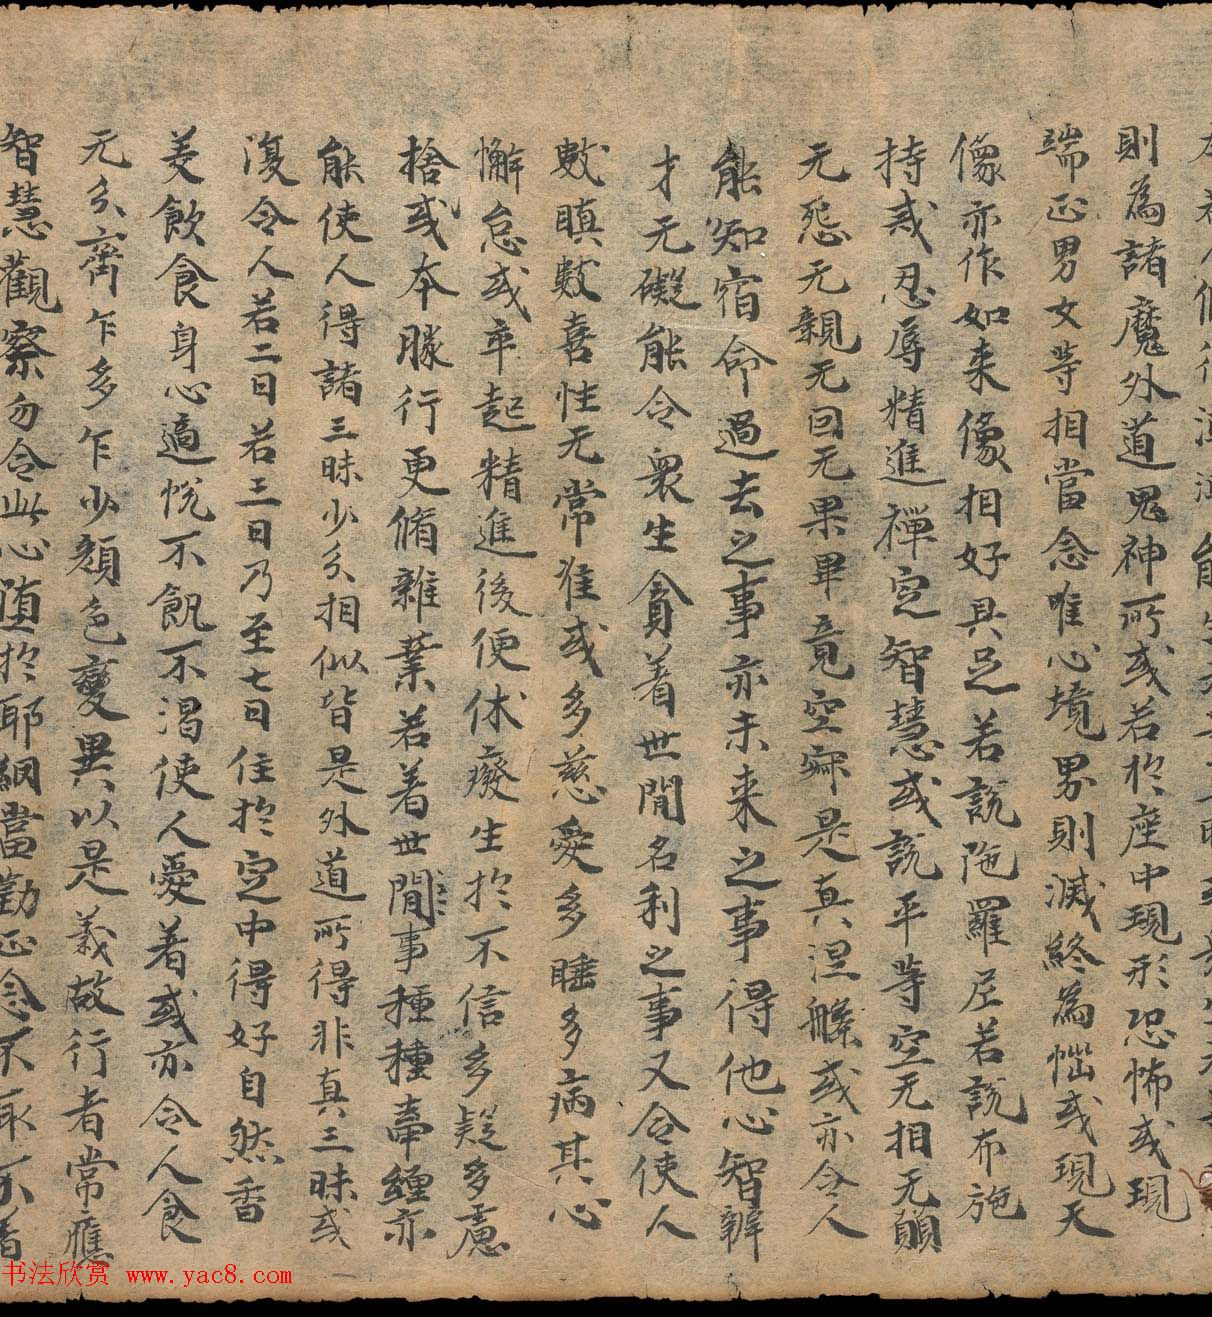 則為諸魔外道鬼神所或若於座中現形恐怖或現
端正男女等相當念唯心境界則滅終為惱或現天
像亦作如来像相好具足若說陁羅尼若說布施
持戒忍辱精進禪定智慧或說平等空无相无願
无怨无親无因无果畢竟空寂是真涅槃或亦令人
能知宿命過去之事亦未来之事得他心智辯
才无礙能令衆生貪着世間名利之事又令使人
數瞋數喜性无常准或多慈愛多睡多病其心
懈怠或卒起精進後便休癈生於不信多疑多慮
捨或本勝行更脩雜業若着世間事種種牽纏亦
能使人得諸三昧少分相似皆是外道所得非真三昧或
復令人若二日若三日乃至七日住於定中得好自然香
美飲食身心適悅不飢不渴使人愛着或亦令人食
无分齊乍多乍少顏色變異以是義故行者常應
智慧觀察勿令此心墮於耶網當勤正念不取不着
书法欣赏 www.yac8.com